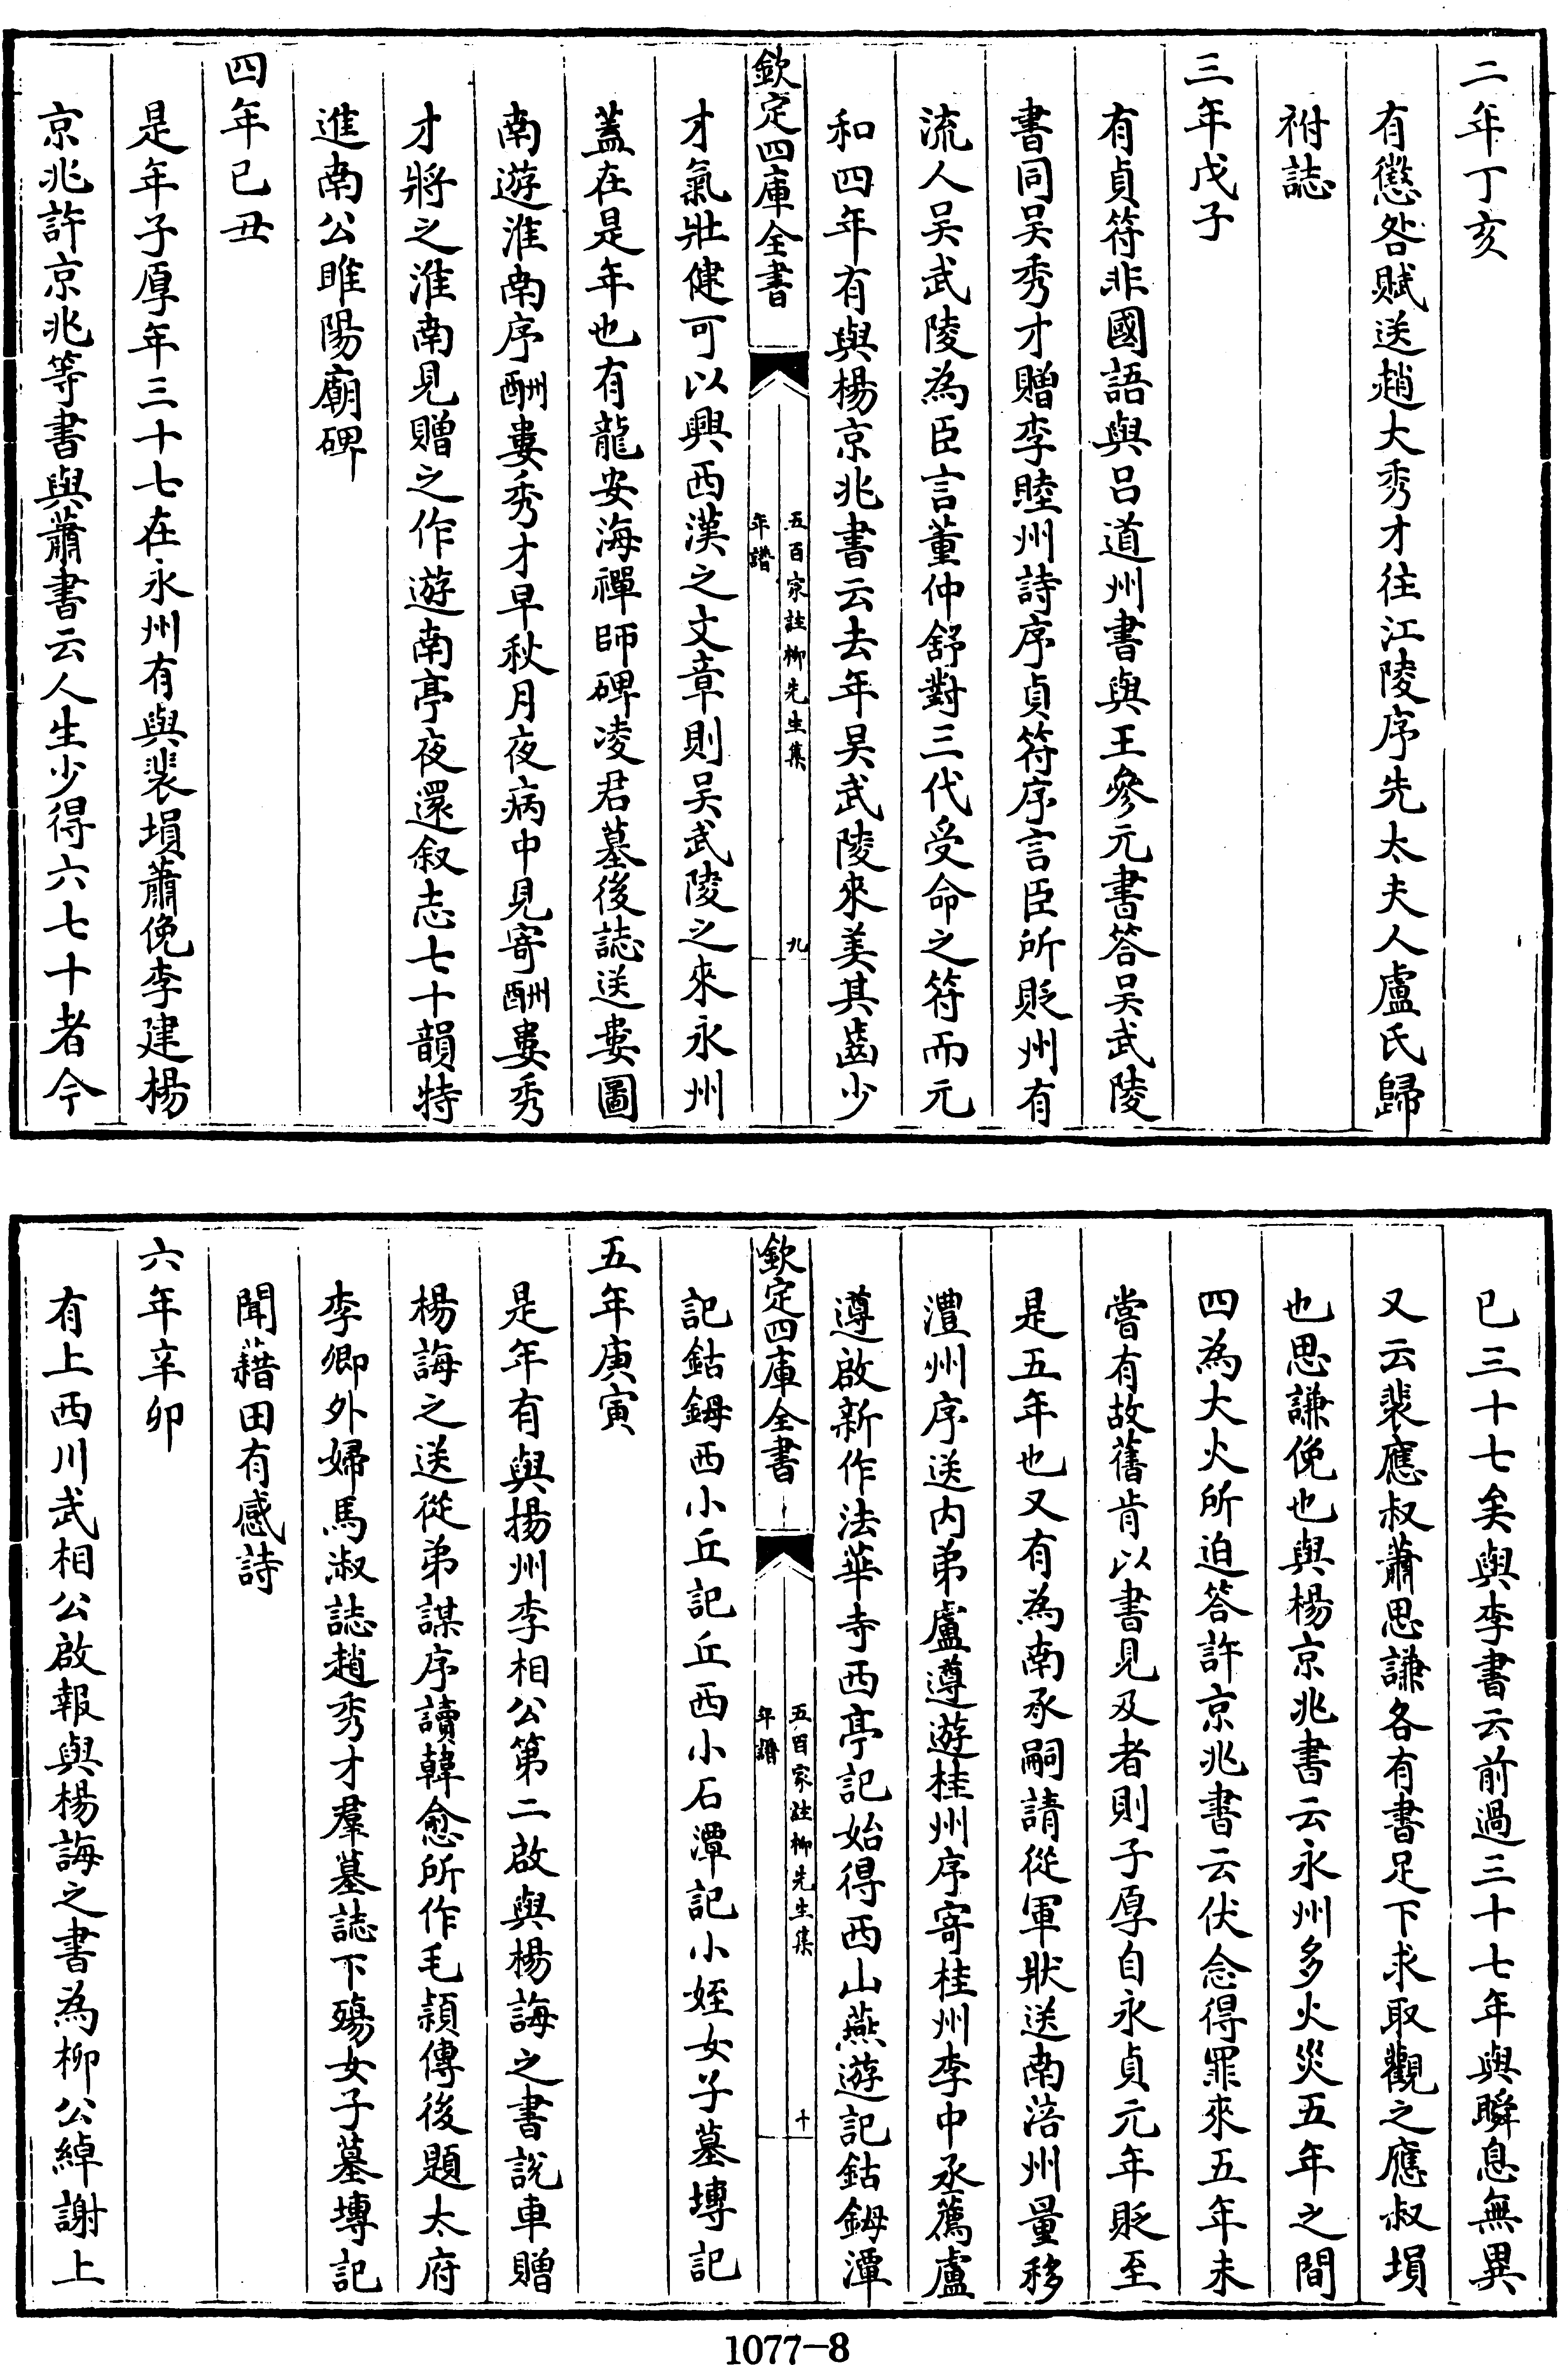 二年丁亥
有懲咎賦送趙大秀才往江陵序先太夫人盧氏歸
祔誌
三年戊子
有貞符非國語與呂道州書與王參元書答吴武陵
書同吴秀才贈李睦州詩序貞符序言臣所貶州有
流人吴武陵為臣言董仲舒對三代受命之符而元
和四年有與楊京兆書云去年吴武陵來美其齒少
欽定四庫全書
五百家註柳先生集
年譜
九
才氣壯健可以興西漢之文章則吴武陵之來永州
蓋在是年也有龍安海禪師碑凌君墓後誌送婁圖
南遊淮南序酬婁秀才早秋月夜病中見寄酬婁秀
才將之淮南見贈之作遊南亭夜還叙志七十韻特
進南公睢陽廟碑
四年已丑
是年子厚年三十七在永州有與裴塤蕭俛李建楊
京兆許京兆等書與蕭書云人生少得六七十者今
已三十七矣與李書云前過三十七年與瞬息無異
又云裴應叔蕭思謙各有書足下求取觀之應叔塤
也思謙俛也與楊京兆書云永州多火災五年之間
四為大火所迫答許京兆書云伏念得罪來五年未
嘗有故舊肯以書見及者則子厚自永貞元年貶至
是五年也又有為南承嗣請從軍狀送南涪州量移
澧州序送内弟盧遵遊桂州序寄桂州李中丞薦盧
遵啟新作法華寺西亭記始得西山燕遊記鈷鉧潭
欽定四庫全書
五百家註柳先生集
年譜
十
記鈷鉧西小丘記丘西小石潭記小姪女子墓塼記
五年庚寅
是年有與揚州李相公第二啟與楊誨之書說車贈
楊誨之送從弟謀序讀韓愈所作毛穎傳後題太府
李卿外婦馬淑誌趙秀才羣墓誌下殤女子墓塼記
聞藉田有感詩
六年辛卯
有上西川武相公啟報與楊誨之書為柳公綽謝上
1077-8